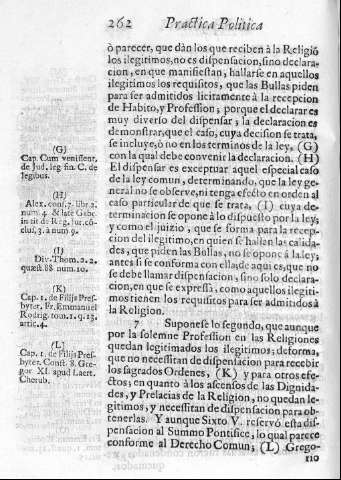 262 Practica Politica
ò parecer, que dàn los que reciben à la Religiõ
los ilegitimos, no es dispensacion, sino declara-
cion, en que manifiestan, hallarse en aquellos
ilegitimos los requisitos, que las Bullas piden
para ser admitidos licitamente à la recepcion
de Habito, y Profession; porque el declarar es
muy diverso del dispensar; la declaracion es
demonstrar, que el caso, cuya decision se trata,
se incluye, ò no en los terminos de la ley, (G)
con la qual debe convenir la declaracion. (H)
El dispensar es exceptuar aquel especial caso
de la ley comun, determinando, que la ley ge-
neral no se observe, ni tenga efecto en orden al
caso particular de que se trata, (I) cuya de-
terminacion se opone à lo dispuesto por la ley;
y como el juizio, que se forma para la recep-
cion del ilegitimo, en quien se hallan las calida-
des, que piden las Bullas, no se opone à la ley;
antes si se conforma con ella, de aqui es, que no
se debe llamar dispensacion, sino solo declara-
cion, en que se expressa, como aquellos ilegiti-
mos tienen los requisitos para ser admitidos à
la Religion.
7 Suponese lo segundo, que aunque
por la solemne Profession en las Religiones
quedan legitimados los ilegitimos; deforma,
que no necessitan de dispensacion para recebir
los sagrados Ordenes, (K) y para otros efe-
ctos; en quanto à los ascensos de las Dignida-
des, y Prelacias de la Religion, no quedan le-
gitimos, y necessitan de dispensacion para ob-
tenerlas. Y aunque Sixto V. reservò esta dis-
pensacion al Summo Pontifice, lo qual parece
conforme al Derecho Comun; (L) Grego-
rio
(G)
Cap. Cum venissent,
de Jud. leg. fin. C. de
legibus.
(H)
Alex. cons. 7. libr. 2.
num. 4. & latè Gabr.
in tit. de Reg. Iur. cõ-
clus. 3. à num 9.
(I)
Div. Thom. 2. 2.
quæst. 88 num. 10.
(K)
Cap. 1. de Filijs Pres-
byter. Fr. Emmanuel
Rodrig. tom. 1. q. 13.
artic. 4.
(L)
Cap. 1. de Filijs Pres-
byter. Const. 8. Gre-
gor XI. apud Laert.
Cherub.